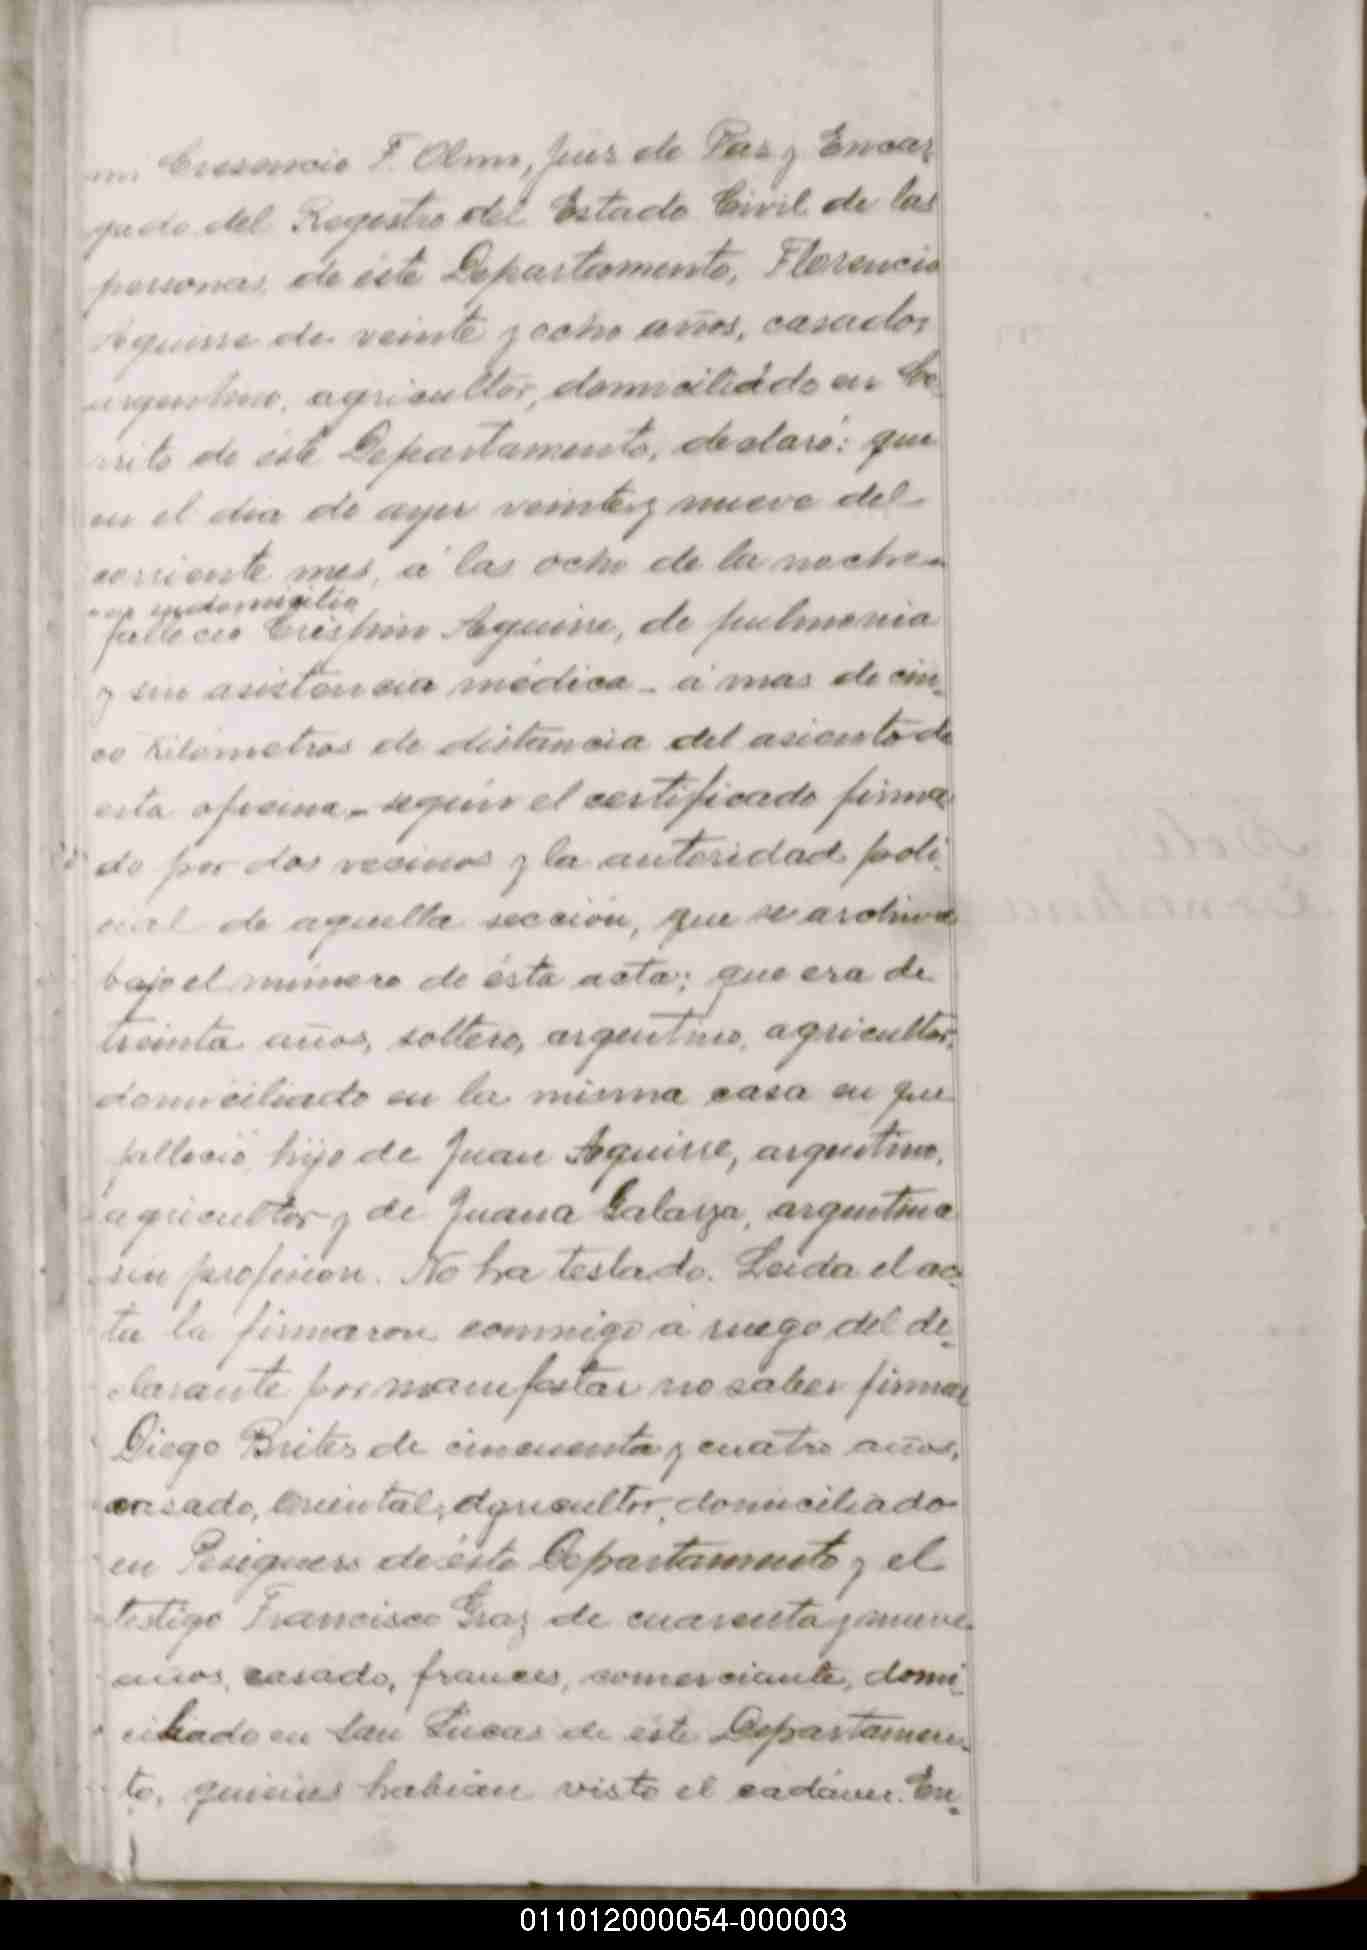 mi Cresencio F. Olmos, Juez de Paz y Encar
gado del Registro del Estado Civil de las
personas, de éste Departamento, Florencio
Aguirre de veinte y ocho años, casado,
argentino, agricultor, domiciliado en Ce-
rrito de éste Departamento, declaró: que
en el dia de ayer veinte y nueve del
corriente mes, á las ocho de la noche
en su domicilio
falleció Crispin Aguirre, de pulmonia
y sin asistencia médica - á mas de cin-
co Kilómetros de distancia del asiento de
esta oficina - según el certificado firma
do por dos vecinos y la autoridad poli-
cial de aquella sección, que se archiva
bajo el número de ésta acta; que era de
treinta años, soltero, argentino, agricultor,
domiciliado en la misma casa en que
falleció, hijo de Juan Aguirre, argentino,
agricultor y de Juana Galarza, argentina
sin profesion. No ha testado. Leida el ac-
ta la firmaron conmigo á ruego del de-
clarante por manifestar no saber firmar
Diego Brites de cincuenta y cuatro años,
casado, Oriental, agricultor, domiciliado
en de ésto Departamento y el
testigo Francisco de cuarenta y nueve
años, casado, frances, comerciante, domi-
ciliado en San Lucas de éste Departamen-
to, quienes habian visto el cadáver. En-
011012000054-000003